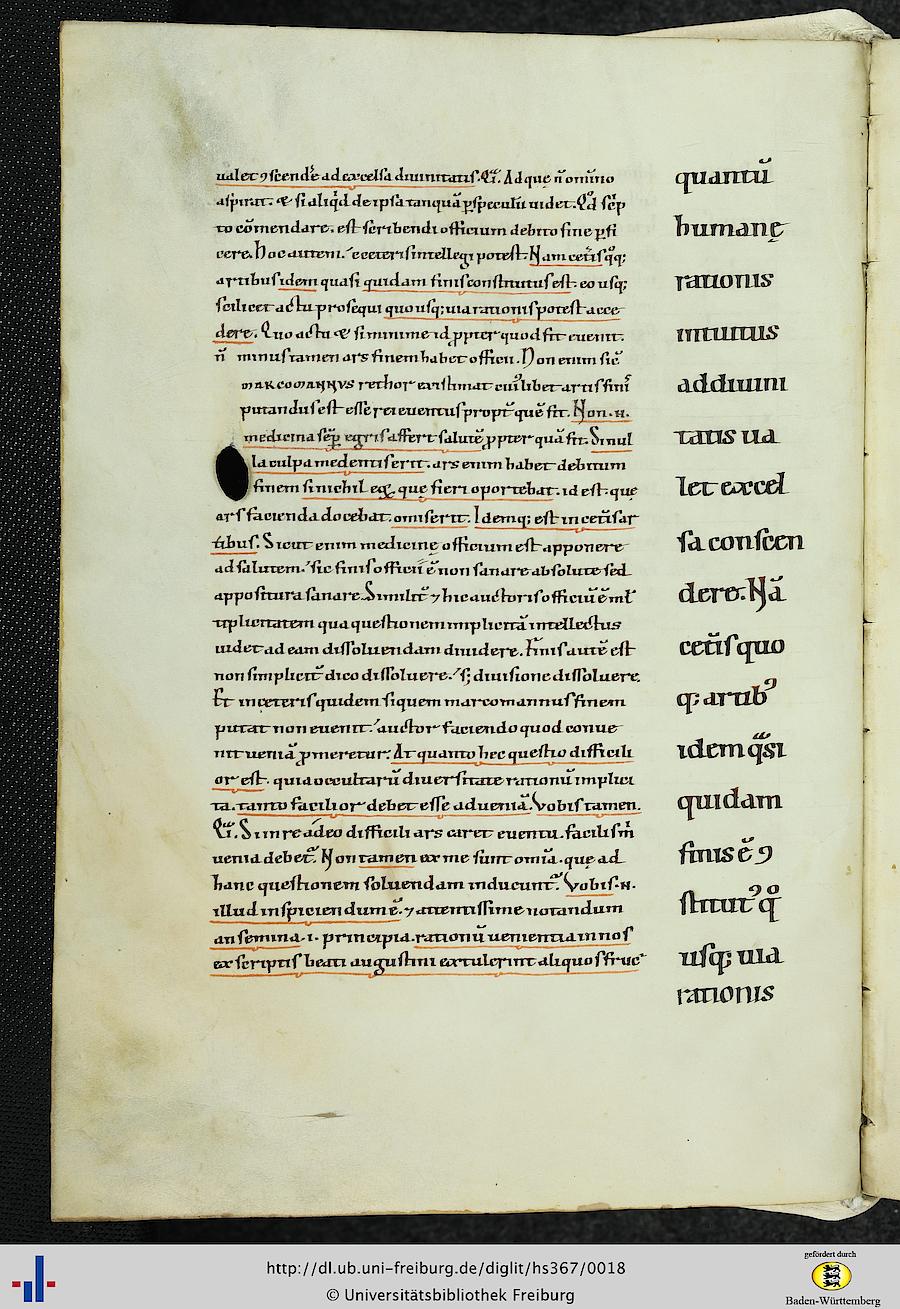 ualet ꝯscendẽ ad excelsa diuinitatis. Q̃i. Ad quę ñ omĩno
aspirat. & si aliq̇d de ipsa tanquã ꝑ speculũ uidet. Qď sc̃p
to cõmendare. est scribendi officium debito fine ꝑfi
cere. Hoc autem. e ceteris intellegi potest. Nam cet̃is q̊q;
artibus idem quasi quidam finis constitutus est. eo usq;
scilicet actu prosequi quo usq; uia rationis potest acce
dere. Quo actu & si minime id ꝓpter quod fit euenit.
ñ minus tamen ars finem habet officii. Non enim sic̃
MARCOMANNVS rethor existimat cui᷒libet artis fini᷒
putandus est esse rei euentus propt̃ quẽ fit. Non .n.
medicina sẽp egris affert salutẽ ꝓpter quã fit. Si nul
la culpa medentis erit. ars enim habet debitum
finem si nichil eoꝝ quę fieri oportebat. id est. quę
ars facienda docebat. omiserit. Idemq; est in cet̃is ar
tibus. Sicut enim medicinę officium est apponere
ad salutem. sic finis officii ẽ non sanare absolute sed
appositura sanare. Similit̃ ⁊ hic auctoris officiũ ẽ ml̃
tiplicitatem qua questionem implicitã intellectus
uidet ad eam dissoluendam diuidere. Finis autẽ est
non simplicit̃ dico dissoluere. s; diuisione dissoluere.
Et in ceteris quidem si quem marcomannus finem
putat non euenit. auctor faciendo quod conue
nit ueniã ꝓmeretur. At quanto hec questio difficili
or est. quia occultarũ diuersitate rationũ implici
ta. tanto facilior debet esse ad ueniã. Vobis tamen.
Q̃i. Si in re adeo difficili ars caret euentu. facilis m̃
uenia debet᷒. Non tamen ex me sunt om̃ia. quę ad
hanc questionem soluendam inducunt᷒. Vobis .n.
illud inspiciendum ẽ. ⁊ attentissime notandum
an semina .i. principia. rationũ uenientia in nos
ex scriptis beati augustini extulerint aliquos fruc᷒
quantũ
humanę
rationis
intuitus
ad diuini
tatis ua
let excel
sa conscen
dere. Nã
cet̃is quo
q; artib᷒
idem q̃si
quidam
finis ẽ ꝯ
stitut᷒ q̊
usq; uia
rationis
http://dl.ub.uni-freiburg.de/diglit/hs367/0018
© Universitätsbibliothek Freiburg
gefördert durch
Baden-Württemberg